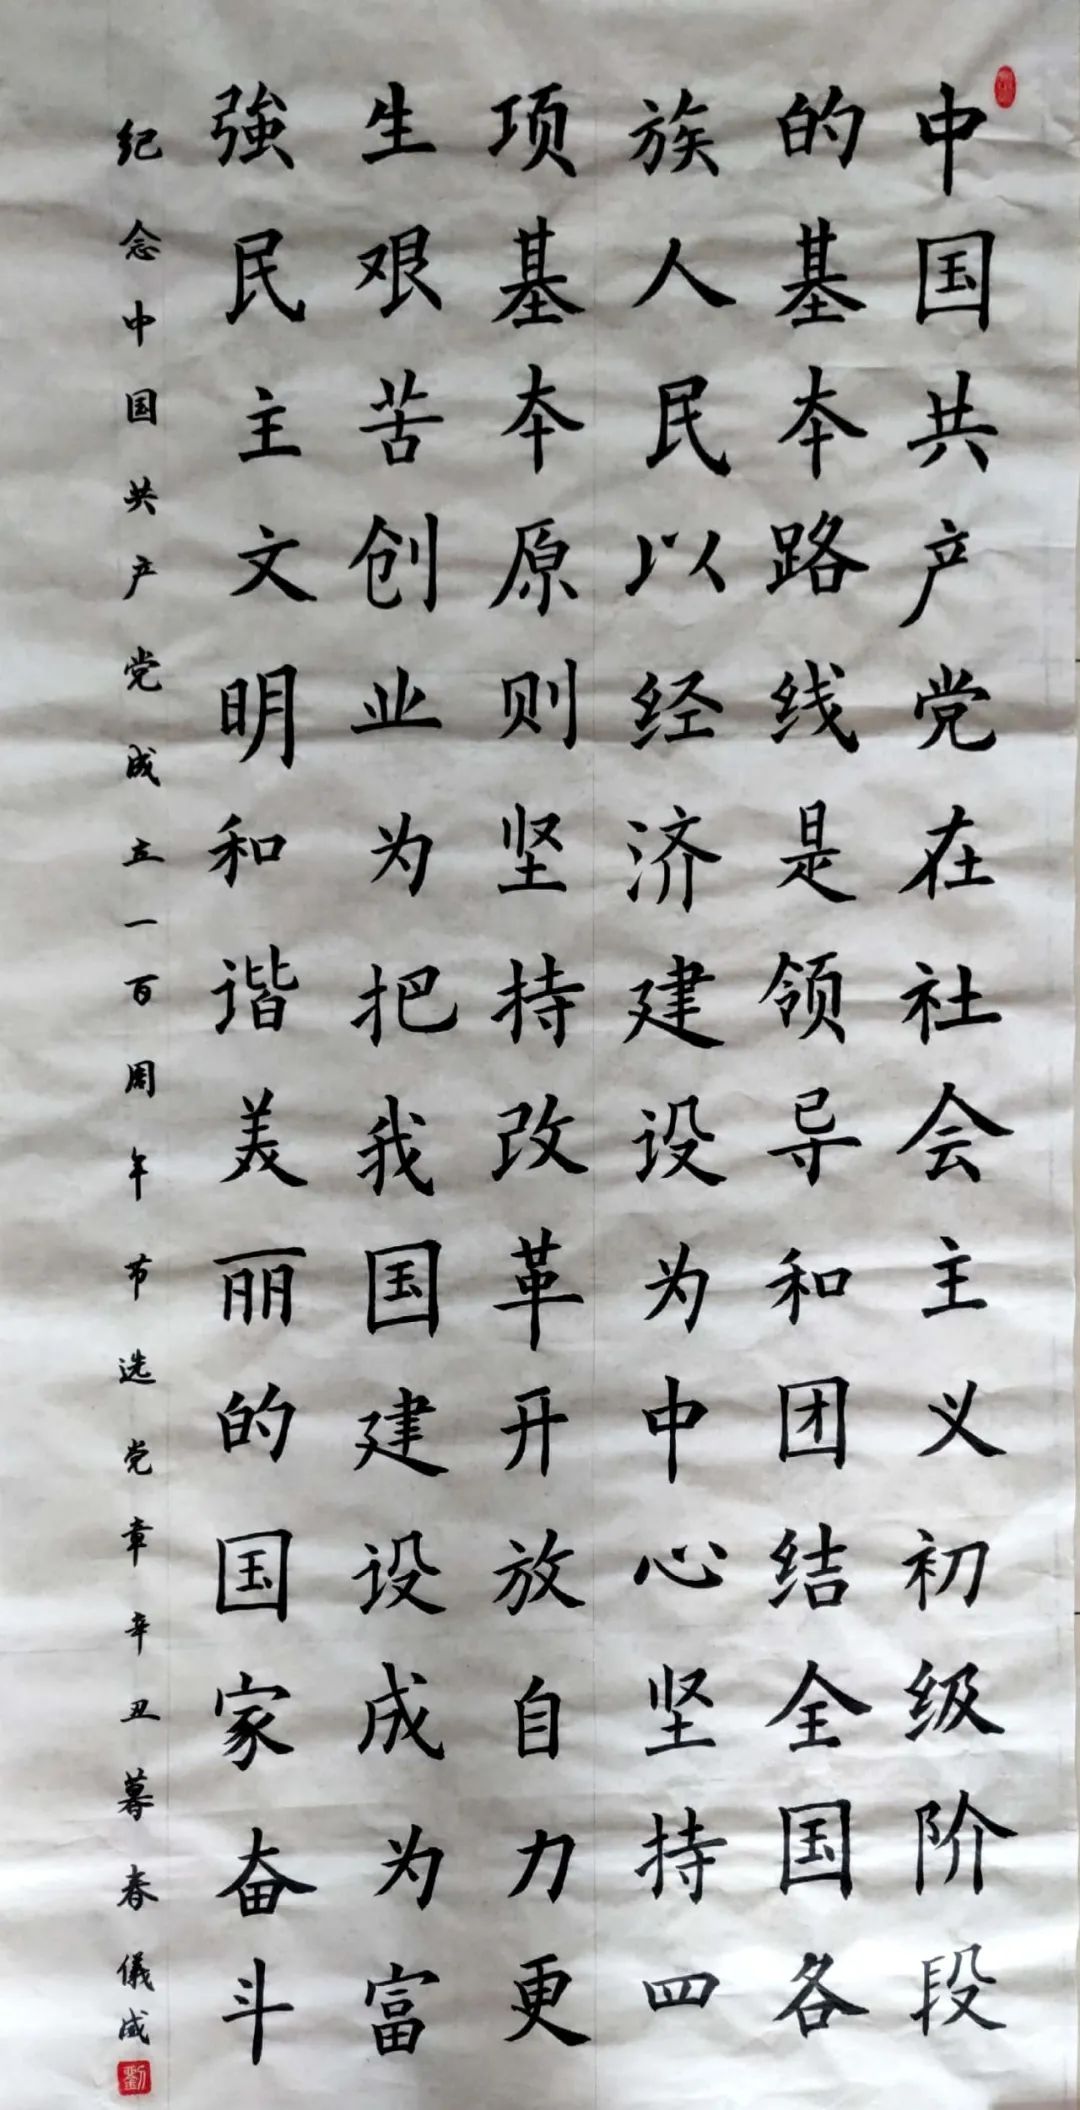 中国共产党在社会主义初级阶段
的基本路线是领导和团结全国各
族人民以经济建设为中心坚持四
项基本原则坚持改革开放自力更
生艰苦创业为把我国建设成为富
強民主文明和谐美丽的国家奋斗
纪念中国共产党成立一百周年节选党章辛丑暮春儀成
劉